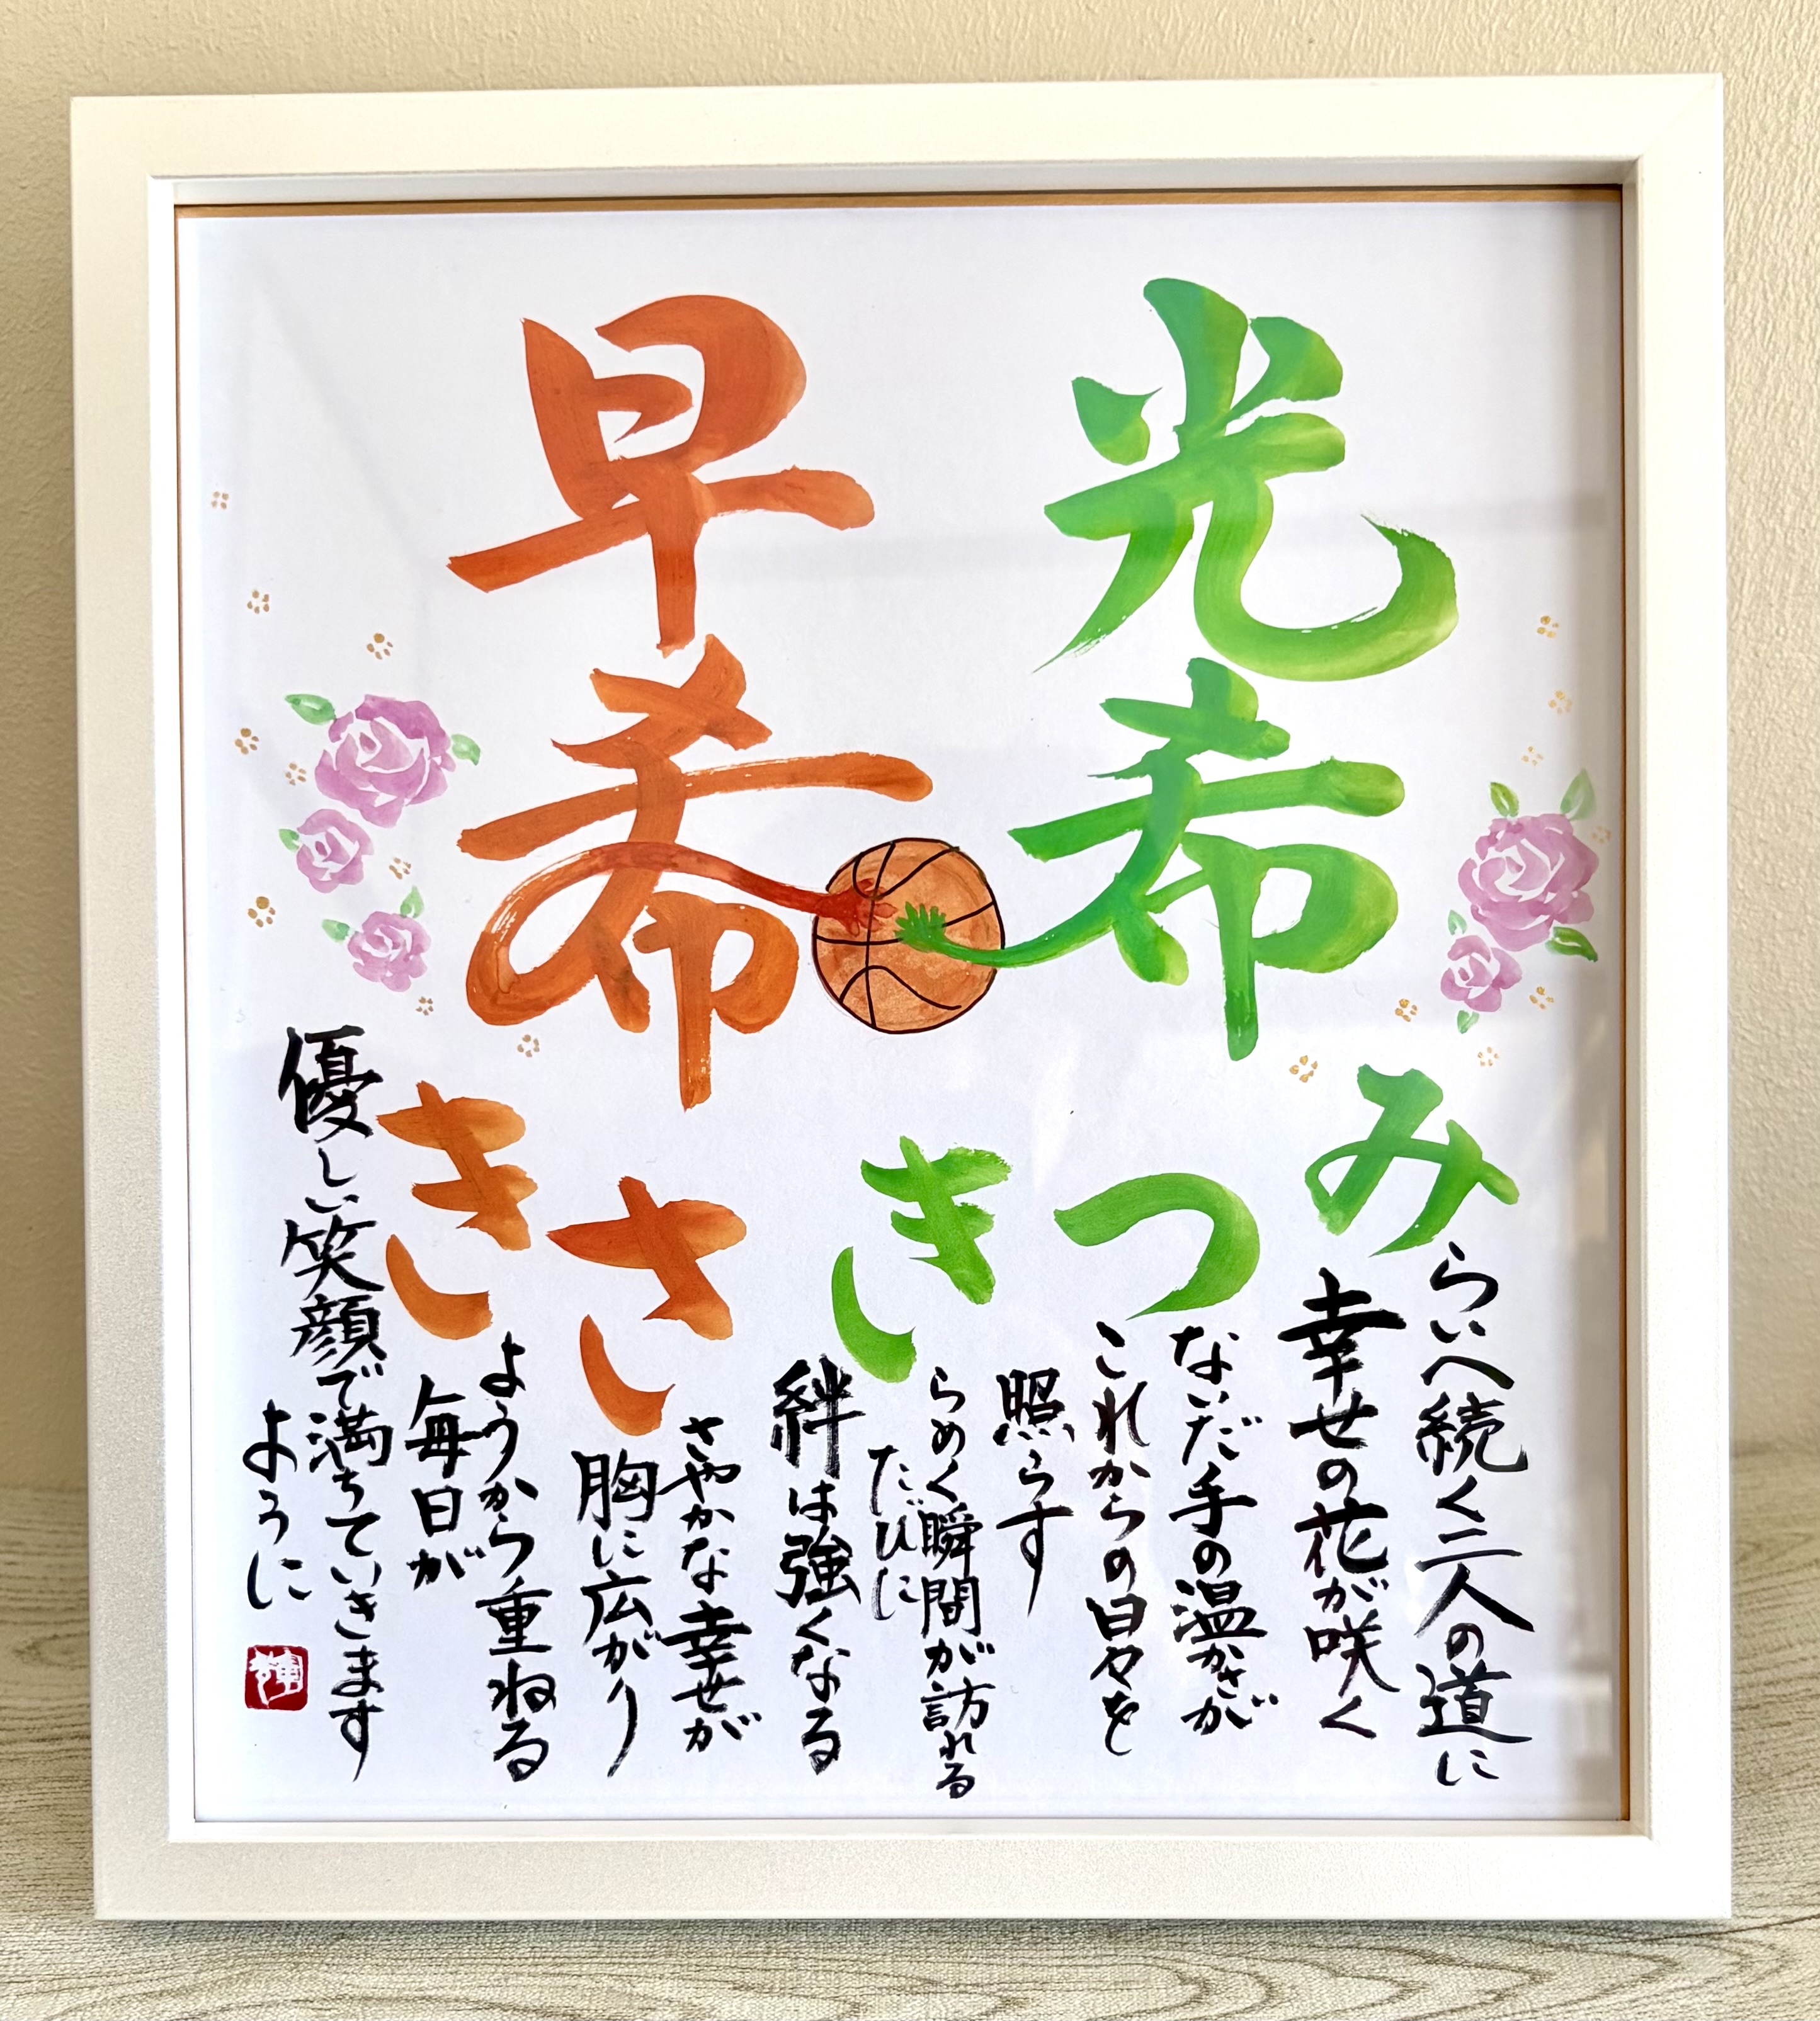 光希
早希
みらいへ続く二人の道に
幸せの花が咲く
つないだ手の温かさが
これからの日々を
照らす
きらめく瞬間が訪れる
たびに
絆は強くなる
さやかな幸せが
胸に広がり
きようから重ねる
毎日が
優しい笑顔で満ちていきます
ように
輝